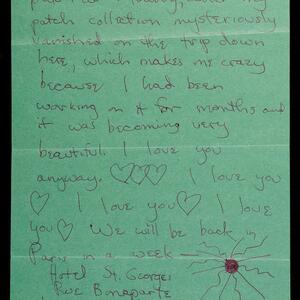 patch collection mysteriously
vanished on the trip down
here, which makes me crazy
because I had been
working on it for months and
it was becoming very
beautiful. I love you
anyway. ♡♡♡ I love you
♡ I love you ♡ I love
you ♡ We will be back in
Paris in a week —
Hotel St. Georges
Rue Bonaparte